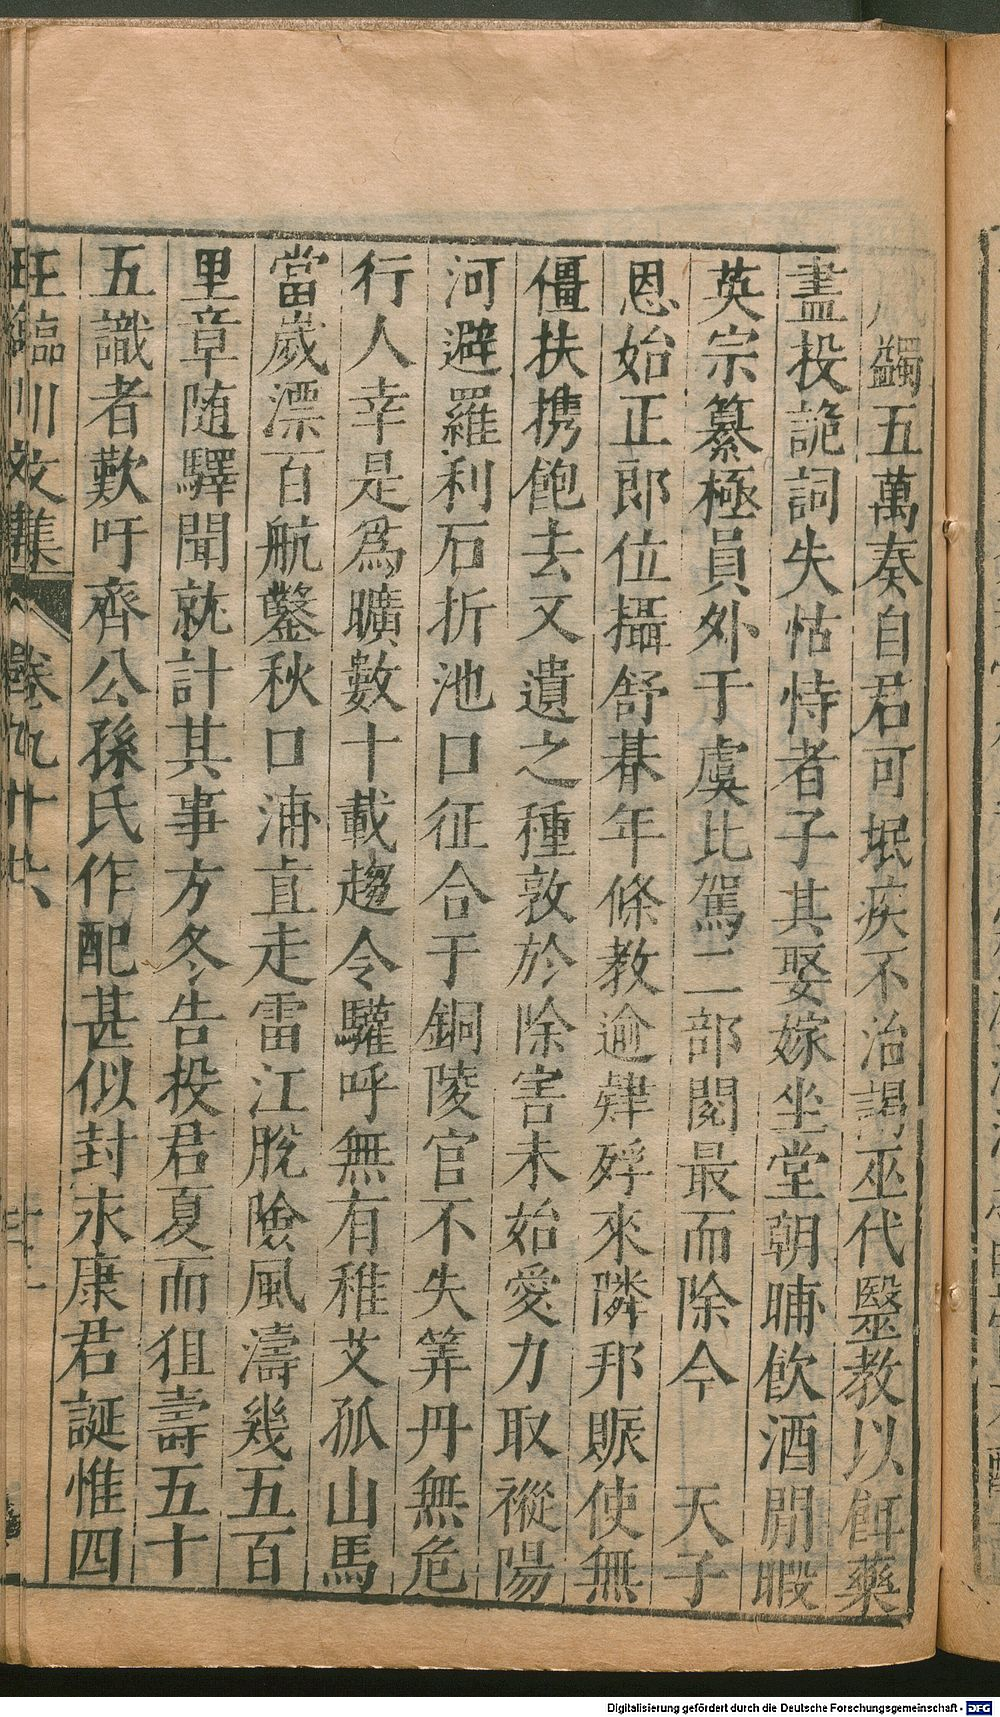 蠲五萬奏自君可坭疾不治謁巫代毉教以餌藥
盡投詭詞失怙恃者子其娶嫁坐堂朝晡飲酒閒暇
英宗纂極員外于虞比駕二部閱最而除今 天子
恩始正郎位攝舒朞年條教逾肄殍來隣邦賑使無
僵扶携飽去又遺之種敦於除害未始愛力取樅陽
河避羅利石折池口征合于銅陵官不失筭舟無危
行人幸是爲曠數十載趨令驩呼無有稚艾孤山馬
當嵗漂百航鑿秋口浦直走雷江脫險風濤幾五百
里章随驛聞就計其事方冬告投君夏而徂壽五十
五識者歎吁齊公孫氏作配甚似封永康君誕惟四
王臨川文集 卷九十六
Digitalisierung gefördert durch die Deutsche Forschungsgemeinschaft - DFG